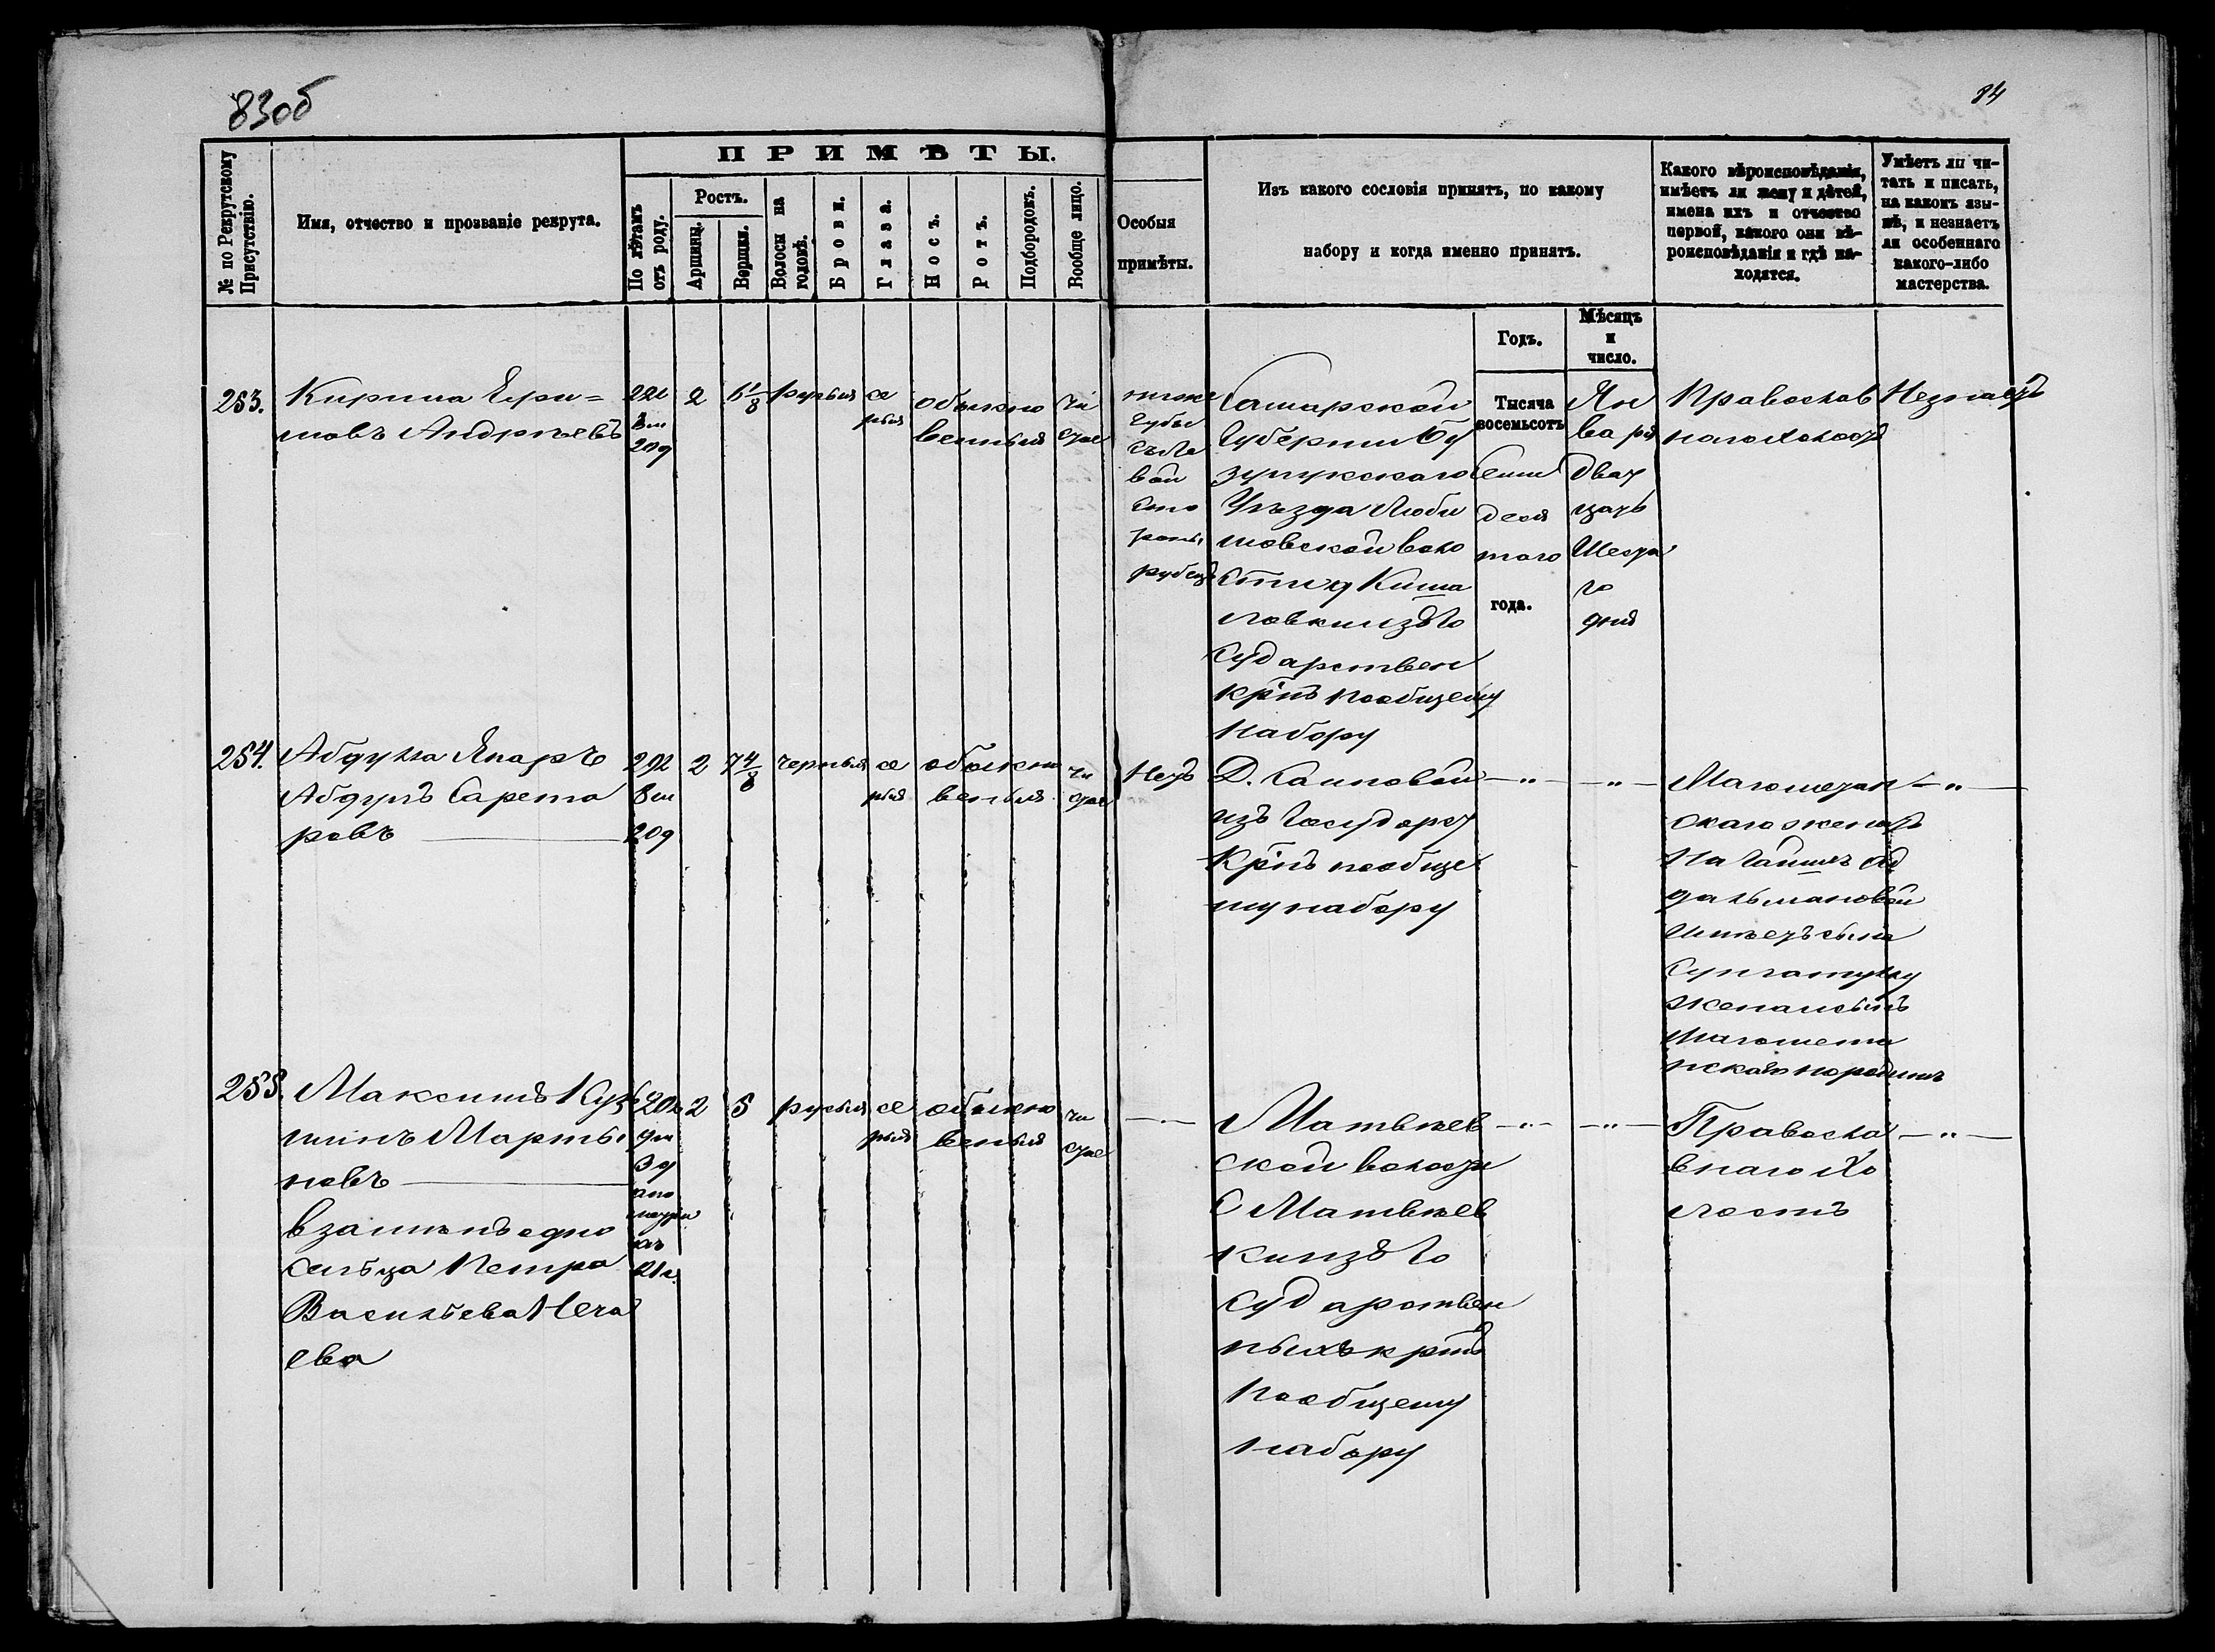 83об
84
№ по Рекрутскому Присутствію.
Имя, отчество и прозваніе рекрута.
ПРИМѢТЫ.
По лѣтамъ отъ роду.
Ростъ.
Аршины.
Вершки.
Волосы на головѣ.
Брови.
Глаза.
Носъ.
Ротъ.
Подбородокъ.
Вообще лицо.
Особыя
примѣты.
Изъ какого сословія принятъ, по какому
набору и когда именно принятъ.
Какого вѣроисповѣданія,
имѣетъ ли жену и дѣтей,
имена ихъ и отчество
первой, какого они вѣ-
роисповѣданія и гдѣ на-
ходятся.
Умѣетъ ли чи-
тать и писать,
на какомъ язы-
кѣ, и незнаетъ
ли особеннаго
какого-либо
мастерства.
Годъ.
Мѣсяцъ
и
число.
253.
Андреевъ
2
русыя
се
рыя
обыкно
венныя
чи
стое
ниже
губы
съ ле
вой
сто
роны
рубецъ
Самарской
Губерніи Бу
зулукскаго
Уѣзда Люби
мовской воло
сти
изъ Го
сударствен
крнъ пообщему
набору
Тысяча
восемьсотъ
Семи
деся
таго
года.
Ян
варя
Двад
цать
Шеста
го
дня
Православ
наго холостъ
Незнаетъ
254.
Абдулла
ровъ
29л
8м
20д
2
7 4/8
черныя
се
рыя
обыкно
венныя
чи
стое
Нетъ
Д.
изъ Государст
Крнъ пообще
му набору
— „ —
— „ —
Магометан
скаго женатъ
на
имѣетъ сына
жена и сынъ
магомета
нскаго
— „ —
255.
Максимъ Кузь
минъ Марты
новъ
взамѣнъ одно
сельца Петра
Васильева Неча
ева
20л
9м
3д
2
5
русыя
се
рыя
обыкно
венныя
чи
стое
— „ —
Матвѣев
ской волости
С Матвѣев
ки изъ Го
сударствен
ныхъ крнъ
пообщему
набору
— „ —
— „ —
Правосла
внаго Хо
лостъ
— „ —